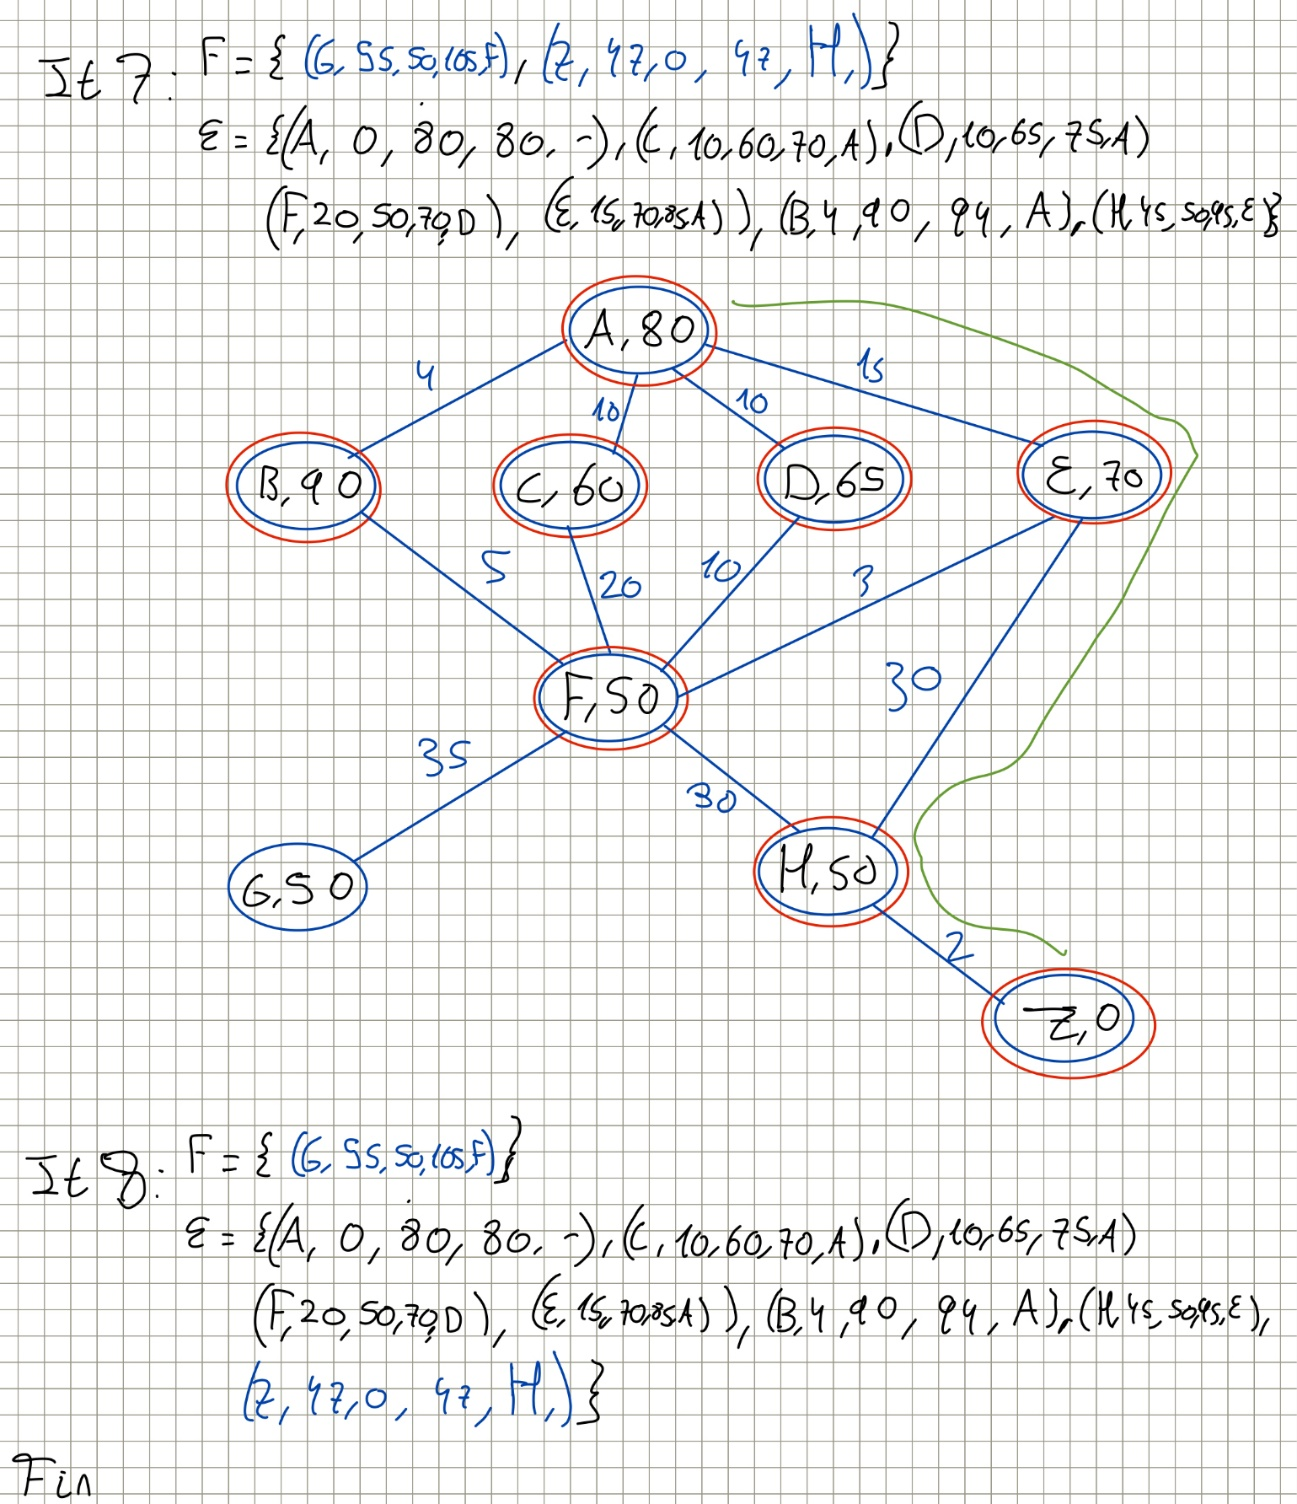 It 7: F = { (G, 55, 50, 105, F), (Z, 47, 0, 47, H,) }
E = {(A, 0, 80, 80, -), (C, 10, 60, 70, A), (D, 10, 65, 75, A)
(F, 20, 50, 70, D), (E, 15, 70, 85 A)), (B, 4, 90, 94, A), (H, 45, 50, 95, E)}
A, 80
4
10
10
15
B, 90
C, 60
D, 65
E, 70
5
20
10
3
30
F, 50
35
30
G, 50
H, 50
2
Z, 0
It 8: F = { (G, 55, 50, 105, F) }
E = {(A, 0, 80, 80, -), (C, 10, 60, 70, A), (D, 10, 65, 75, A)
(F, 20, 50, 70, D), (E, 15, 70, 85 A)), (B, 4, 90, 94, A), (H, 45, 50, 95, E),
(Z, 47, 0, 47, H,) }
Fin